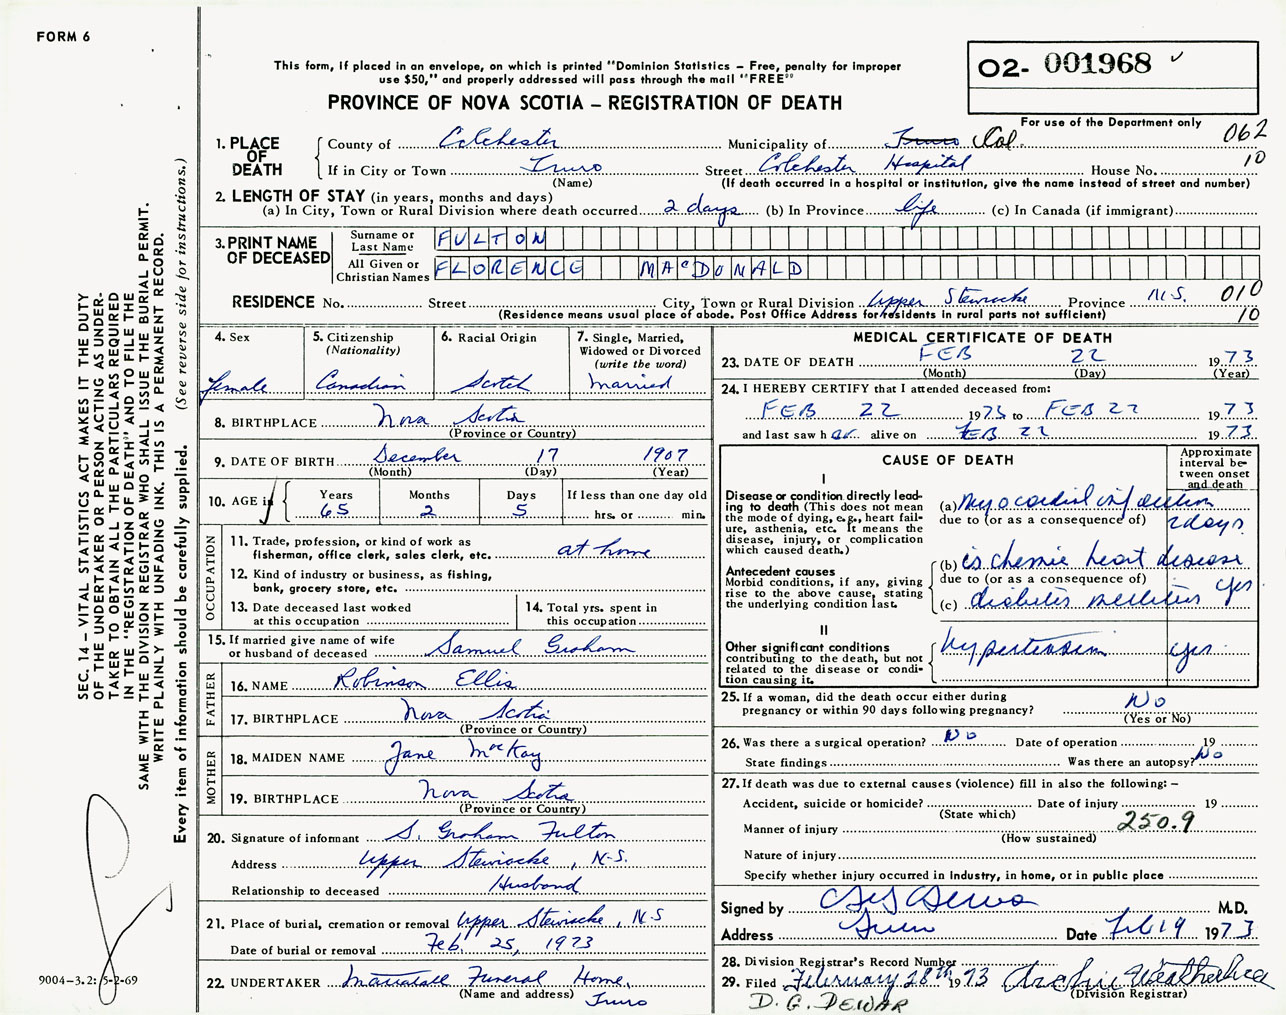 FORM 6
This form, if placed in an envelope, on which is printed "Dominion Statistics – Free, penalty for improper
use $50," and properly addressed will pass through the mail "FREE"
PROVINCE OF NOVA SCOTIA – REGISTRATION OF DEATH
02- 001968
For use of the Department only
062
10
1. PLACE OF DEATH
County of Colchester Municipality of Truro Col.
If in City or Town Truro Street Colchester Hospital House No.
(Name) (If death occurred in a hospital or institution, give the name instead of street and number)
2. LENGTH OF STAY (in years, months and days)
(a) In City, Town or Rural Division where death occurred 2 days (b) In Province life (c) In Canada (if immigrant)
3. PRINT NAME OF DECEASED
Surname or Last Name FULTON
All Given or Christian Names FLORENCE MACDONALD
RESIDENCE No. Street City, Town or Rural Division Upper Stewiacke Province N.S. 010
(Residence means usual place of abode. Post Office Address for residents in rural parts not sufficient) 10
4. Sex female
5. Citizenship (Nationality) Canadian
6. Racial Origin Scotch
7. Single, Married, Widowed or Divorced (write the word) Married
8. BIRTHPLACE Nova Scotia
(Province or Country)
9. DATE OF BIRTH December 17 1907
(Month) (Day) (Year)
10. AGE in Years 65 Months 2 Days 5 If less than one day old hrs. or min.
OCCUPATION
11. Trade, profession, or kind of work as
fisherman, office clerk, sales clerk, etc. at home
12. Kind of industry or business, as fishing,
bank, grocery store, etc.
13. Date deceased last worked
at this occupation
14. Total yrs. spent in
this occupation
15. If married give name of wife
or husband of deceased Samuel Graham
FATHER
16. NAME Robinson Ellis
17. BIRTHPLACE Nova Scotia
(Province or Country)
MOTHER
18. MAIDEN NAME Jane MacKay
19. BIRTHPLACE Nova Scotia
(Province or Country)
20. Signature of informant S. Graham Fulton
Address Upper Stewiacke, N.S.
Relationship to deceased Husband
21. Place of burial, cremation or removal Upper Stewiacke, N.S
Date of burial or removal Feb. 25, 1973
22. UNDERTAKER Mattatall Funeral Home,
(Name and address) Truro
MEDICAL CERTIFICATE OF DEATH
23. DATE OF DEATH FEB 22 1973
(Month) (Day) (Year)
24. I HEREBY CERTIFY that I attended deceased from:
FEB 22 1973 to FEB 22 1973
and last saw her alive on FEB 22 1973
CAUSE OF DEATH
Approximate interval between onset and death
I
Disease or condition directly lead-
ing to death (This does not mean
the mode of dying, e.g., heart fail-
ure, asthenia, etc. It means the
disease, injury, or complication
which caused death.)
(a) myocardial infarction
due to (or as a consequence of) 2 days
Antecedent causes
Morbid conditions, if any, giving
rise to the above cause, stating
the underlying condition last.
(b) ischemic heart disease
due to (or as a consequence of) yrs
(c) diabetes mellitus
II
Other significant conditions
contributing to the death, but not
related to the disease or condi-
tion causing it.
hypertension yrs.
25. If a woman, did the death occur either during
pregnancy or within 90 days following pregnancy? No
(Yes or No)
26. Was there a surgical operation? No Date of operation 19
State findings Was there an autopsy? No
27. If death was due to external causes (violence) fill in also the following: –
Accident, suicide or homicide? Date of injury 19
(State which)
Manner of injury 250.9
(How sustained)
Nature of injury
Specify whether injury occurred in industry, in home, or in public place
Signed by M.D.
Address Truro Date Feb 19 1973
28. Division Registrar's Record Number
29. Filed February 28th 1973 Archie Weatherbee
(Division Registrar)
D. G. DEWAR
SEC. 14 – VITAL STATISTICS ACT MAKES IT THE DUTY
OF THE UNDERTAKER OR PERSON ACTING AS UNDER-
TAKER TO OBTAIN ALL THE PARTICULARS REQUIRED
IN THE "REGISTRATION OF DEATH" AND TO FILE THE
SAME WITH THE DIVISION REGISTRAR WHO SHALL ISSUE THE BURIAL PERMIT.
WRITE PLAINLY WITH UNFADING INK. THIS IS A PERMANENT RECORD.
Every item of information should be carefully supplied. (See reverse side for instructions.)
9004-3.2: 5-2-69